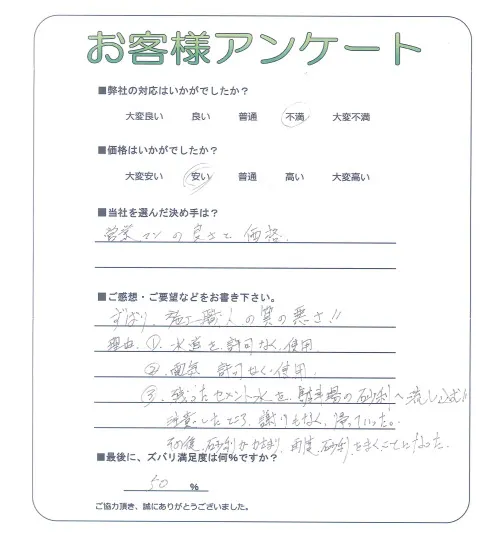 お客様アンケート
■弊社の対応はいかがでしたか？
大変良い 良い 普通 不満 大変不満
■価格はいかがでしたか？
大変安い 安い 普通 高い 大変高い
■当社を選んだ決め手は？
営業マンの良さと価格.
■ご感想・ご要望などをお書き下さい。
ずばり、施工職人の質の悪さ!!
理由 ①. 水道を許可なく使用.
②. 電気 許可なく使用.
③. 残ったセメント水を、駐車場の砂利へ流し込む!!
注意したところ、謝りもなく、帰っていった。
その後、砂利がかたまり、再度、砂利をまくことになった.
■最後に、ズバリ満足度は何%ですか？
50 %
ご協力頂き、誠にありがとうございました。